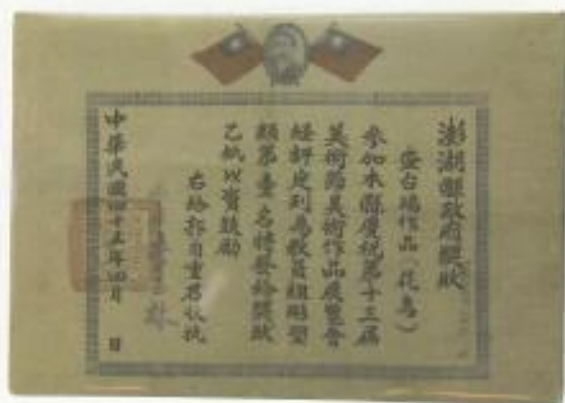 澎湖縣政府獎狀
查台端作品（花鳥）
參加本縣慶祝第十三屆
美術節美術作品展覽會
經評定列為教員組彫塑
類第壹名特發給獎狀
乙紙以資鼓勵
右給 君收執
中華民國四十五年四月 日